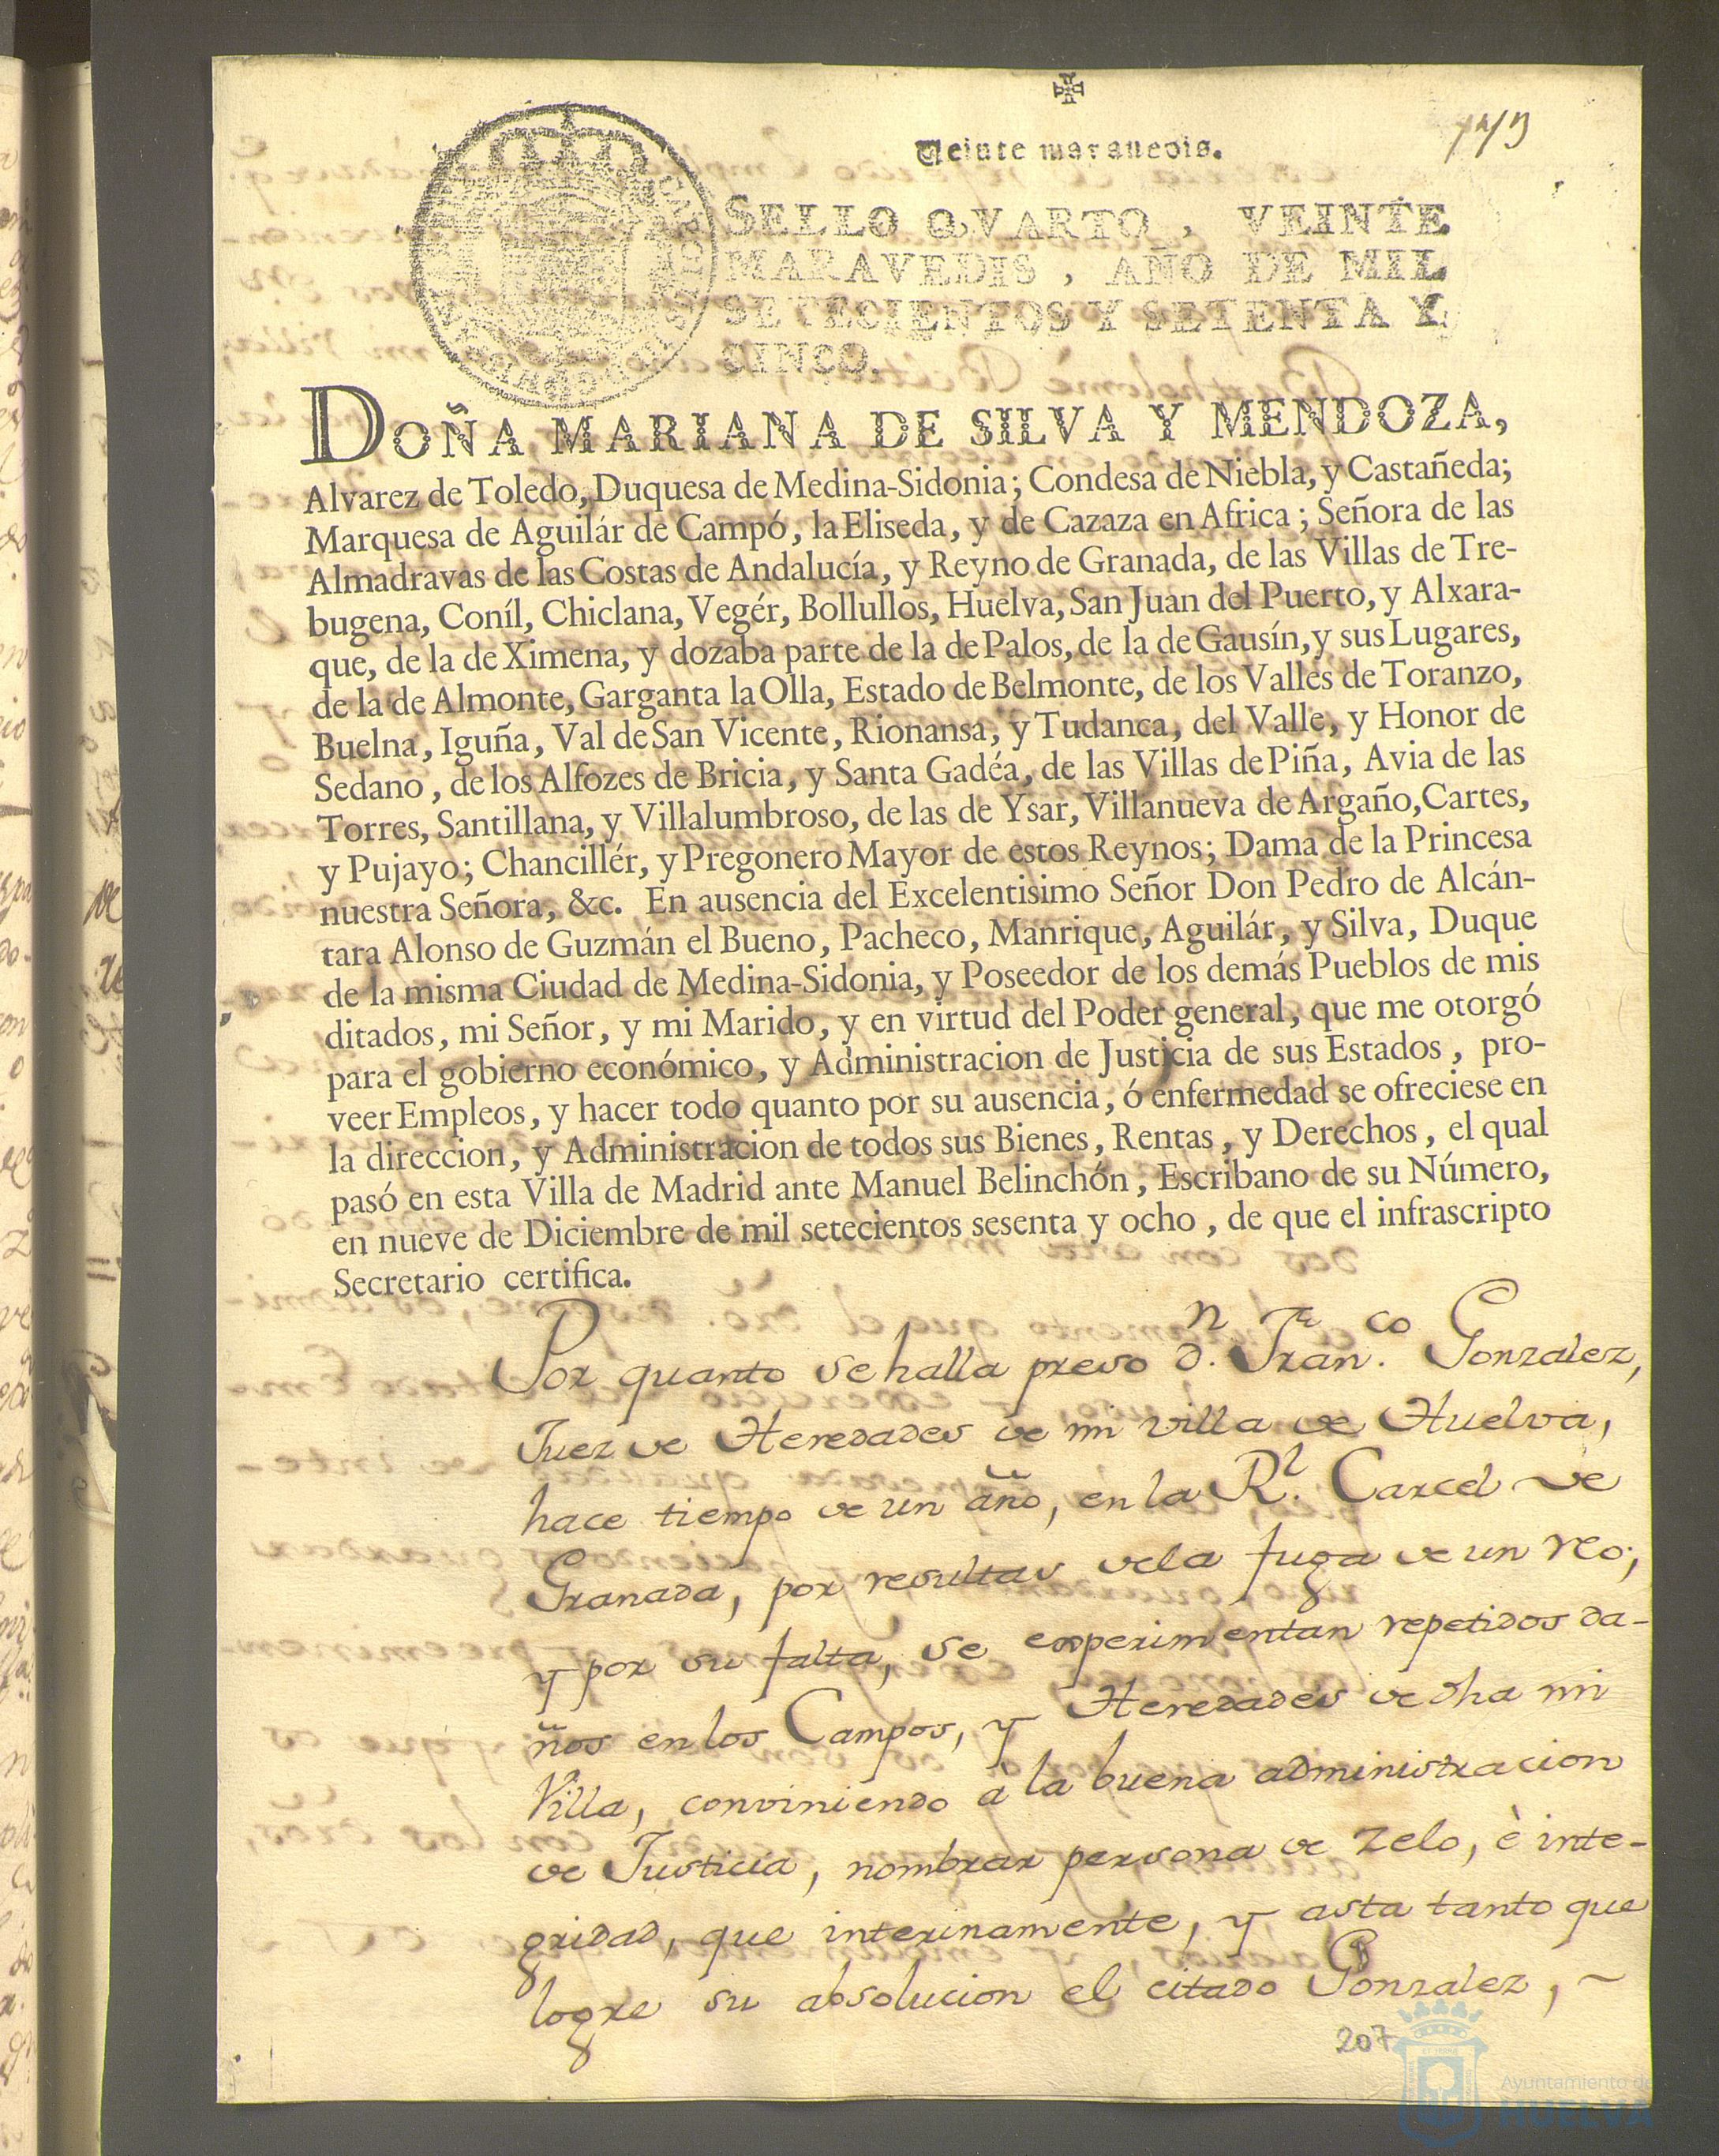 Veinte maravedis.
SELLO QVARTO, VEINTE
MARAVEDIS, AÑO DE MIL
SETECIENTOS Y SETENTA Y
CINCO.
DOÑA MARIANA DE SILVA Y MENDOZA,
Alvarez de Toledo, Duquesa de Medina-Sidonia; Condesa de Niebla, y Castañeda;
Marquesa de Aguilár de Campó, la Eliseda, y de Cazaza en Africa; Señora de las
Almadravas de las Costas de Andalucía, y Reyno de Granada, de las Villas de Tre-
bugena, Coníl, Chiclana, Vegér, Bollullos, Huelva, San Juan del Puerto, y Alxara-
que, de la de Ximena, y dozaba parte de la de Palos, de la de Gausín, y sus Lugares,
de la de Almonte, Garganta la Olla, Estado de Belmonte, de los Valles de Toranzo,
Buelna, Iguña, Val de San Vicente, Rionansa, y Tudanca, del Valle, y Honor de
Sedano, de los Alfozes de Bricia, y Santa Gadéa, de las Villas de Piña, Avia de las
Torres, Santillana, y Villalumbroso, de las de Ysar, Villanueva de Argaño, Cartes,
y Pujayo; Chancillér, y Pregonero Mayor de estos Reynos; Dama de la Princesa
nuestra Señora, &c. En ausencia del Excelentisimo Señor Don Pedro de Alcán-
tara Alonso de Guzmán el Bueno, Pacheco, Manrique, Aguilár, y Silva, Duque
de la misma Ciudad de Medina-Sidonia, y Poseedor de los demás Pueblos de mis
ditados, mi Señor, y mi Marido, y en virtud del Poder general, que me otorgó
para el gobierno económico, y Administracion de Justicia de sus Estados, pro-
veer Empleos, y hacer todo quanto por su ausencia, ó enfermedad se ofreciese en
la direccion, y Administracion de todos sus Bienes, Rentas, y Derechos, el qual
pasó en esta Villa de Madrid ante Manuel Belinchón, Escribano de su Número,
en nueve de Diciembre de mil setecientos sesenta y ocho, de que el infrascripto
Secretario certifica.
Por quanto se halla preso d.n Fran.co Gonzalez,
Juez de Heredades de mi villa de Huelva,
hace tiempo de un año, en la R.l Carcel de
Granada, por resultas dela fuga de un reo;
y por su falta, se experimentan repetidos da-
ños en los Campos, y Heredades de dha mi
Villa, conviniendo à la buena administracion
de Justicia, nombrar persona de zelo, è inte-
gridad, que interinamente, y asta tanto que
logre su absolucion el citado Gonzalez,
207
Ayuntamiento de
HUELVA